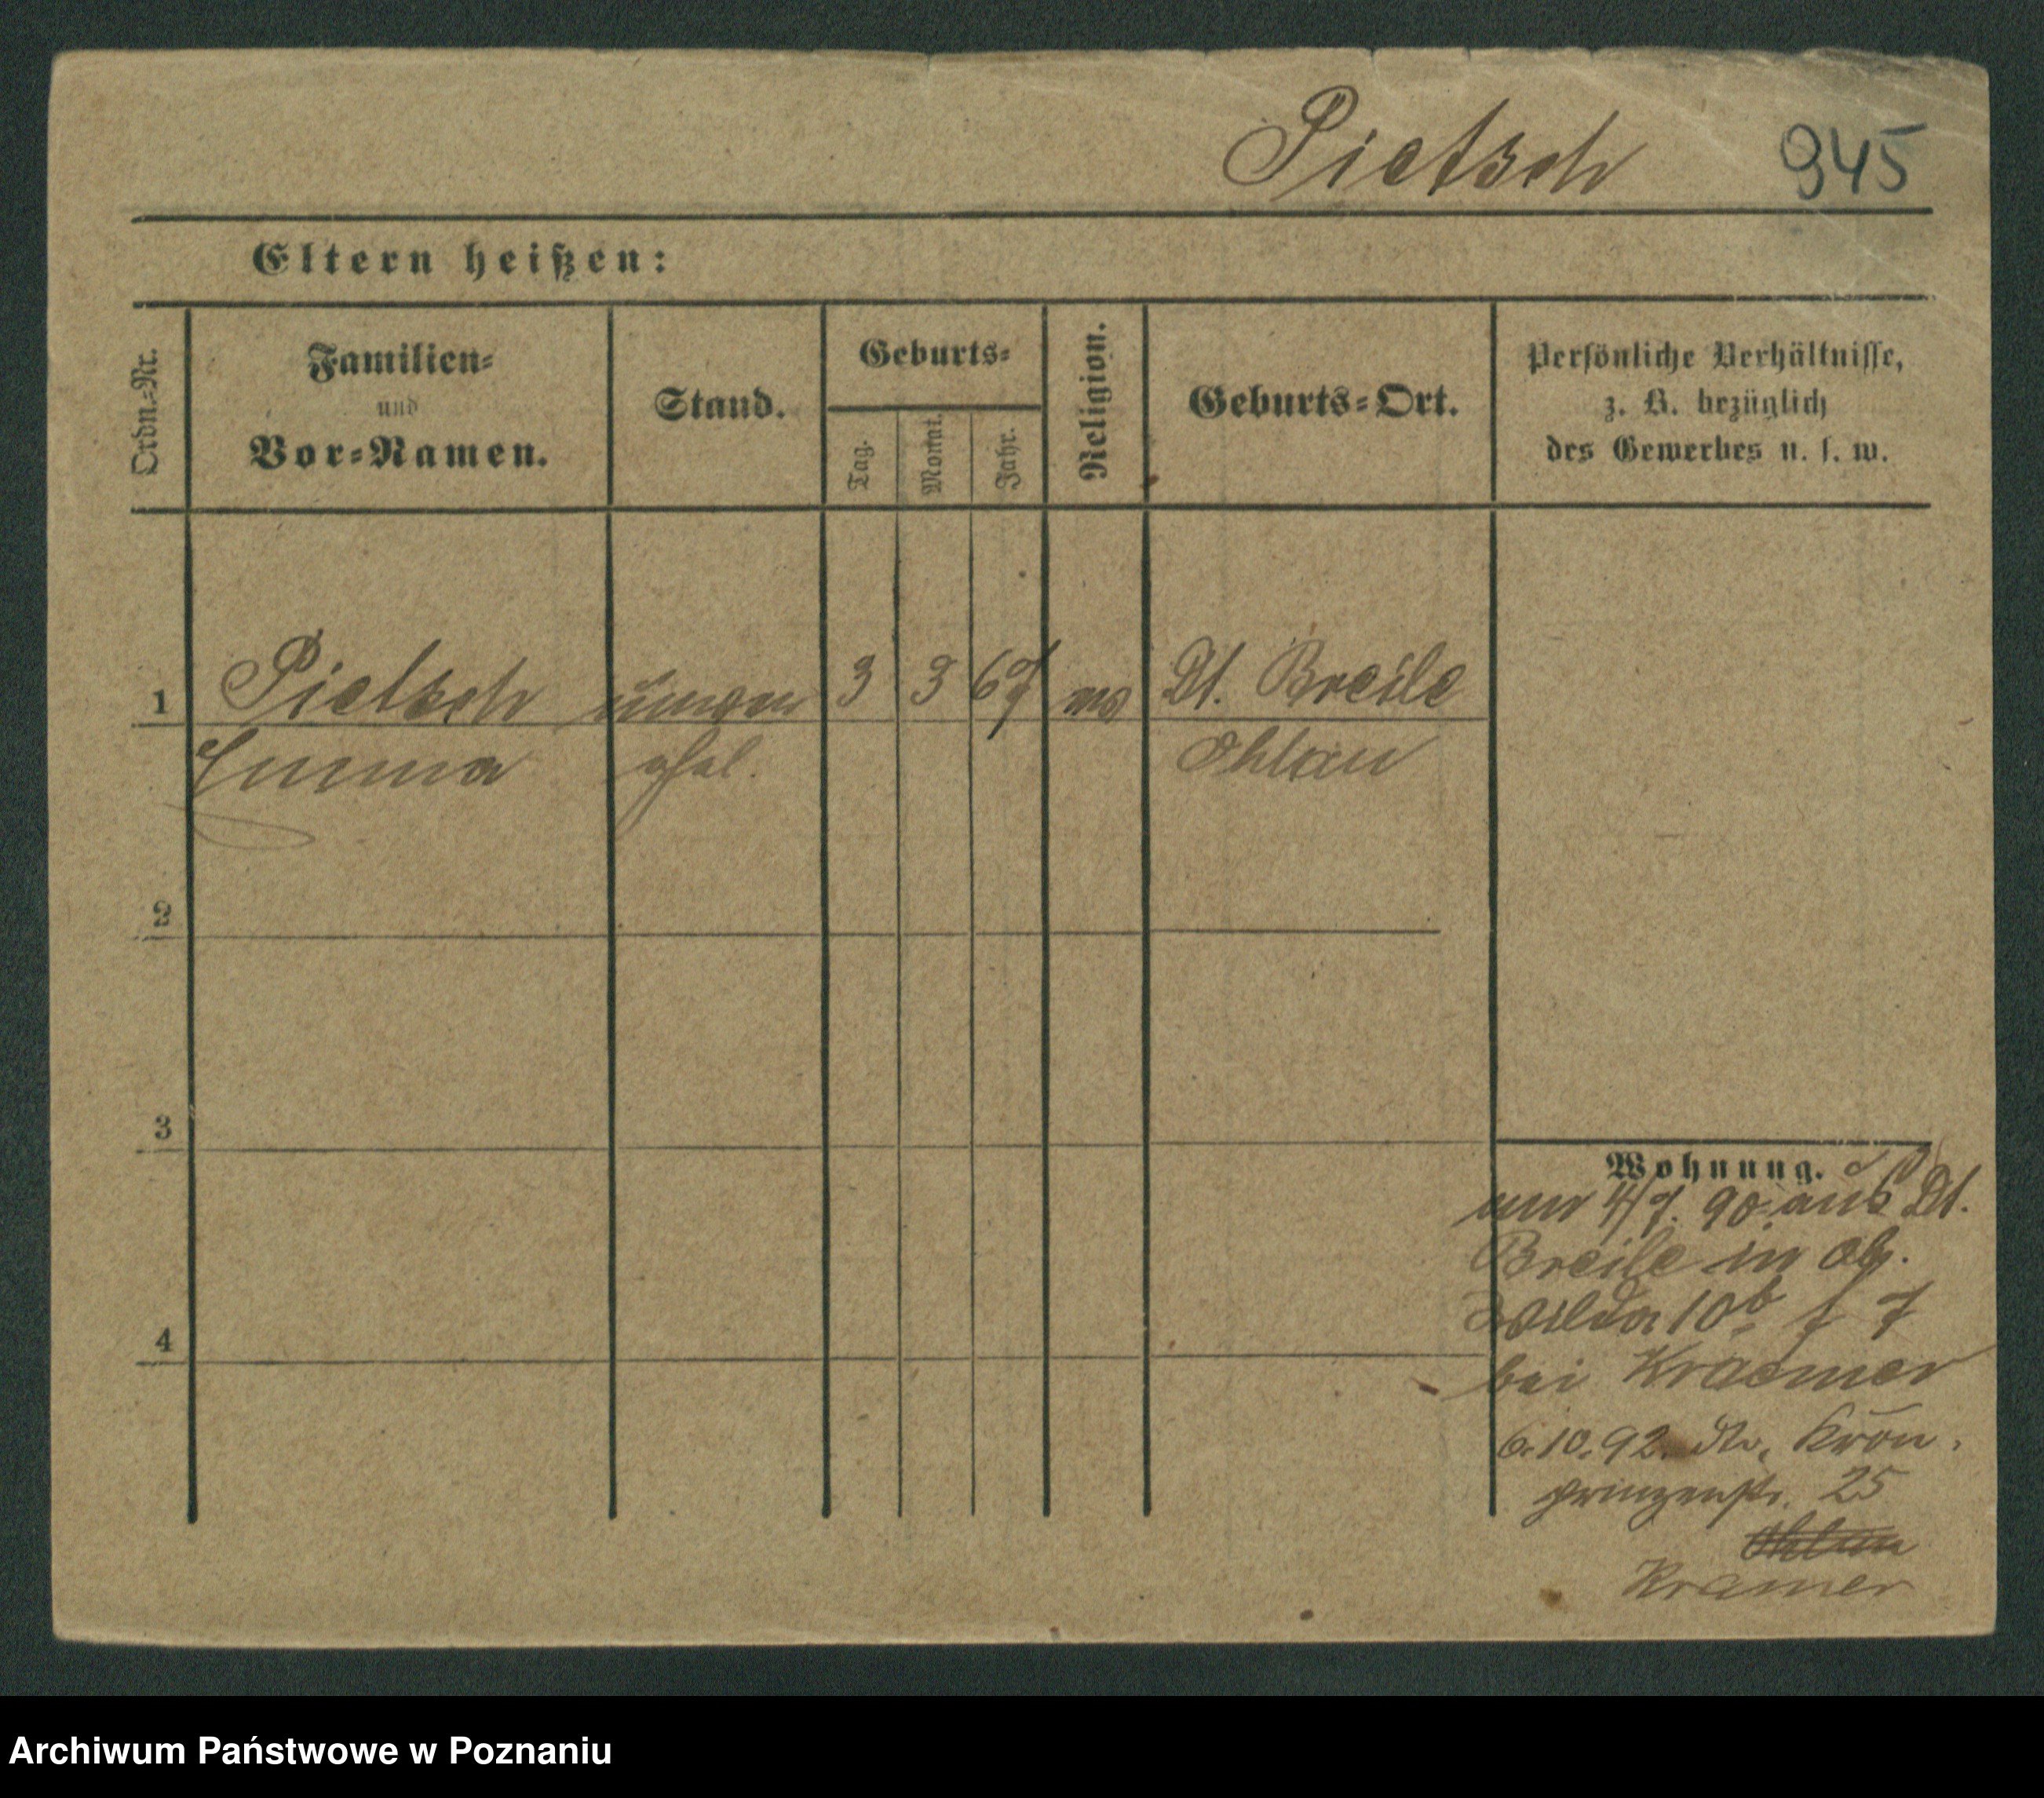 Pietsch 945
Eltern heißen:
Ordn.-Nr.
Familien-
und
Vor-Namen.
Stand.
Geburts-
Tag.
Monat.
Jahr.
Religion.
Geburts-Ort.
Persönliche Verhältnisse,
z. B. bezüglich
des Gewerbes u. s. w.
1 Pietsch 3 3 67 Dt. Breile
Emma Ohlau
2
3
4
Wohnung.
4/7. 90. aus Dt.
Breile in
Wilda 10b 7
bei Kraemer
6.10.92. Kron-
prinzenstr. 25
Ohlau
Kramer
Archiwum Państwowe w Poznaniu